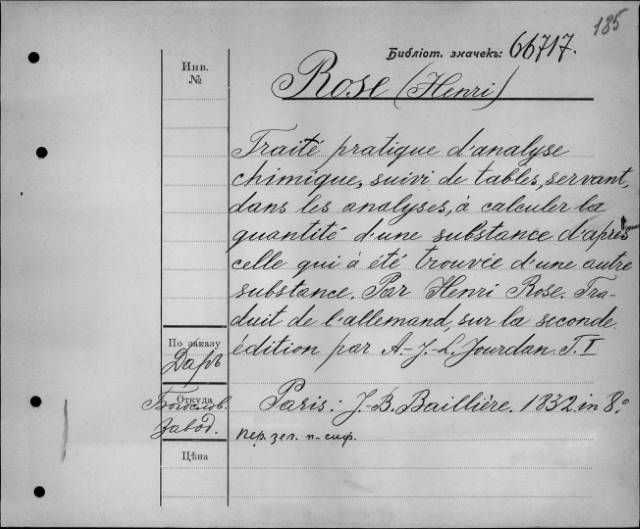 185
Библіот. значекъ: 66717.
Инв.
№
Rose (Henri)
Traité pratique d'analyse
chimique, suivi de tables, servant,
dans les analyses, à calculer la
quantité d'une substance d'après
celle qui à été trouvée d'une autre
substance. Par Henri Rose. Tra-
duit de l'allemand, sur la seconde
édition par A.-J.-L. Jourdan. T. I
По заказу
Даръ
Откуда
Богослов.
Завод.
Paris: J.-B. Baillière. 1832. in 8.º
пер. зел. п-сиф.
Цѣна